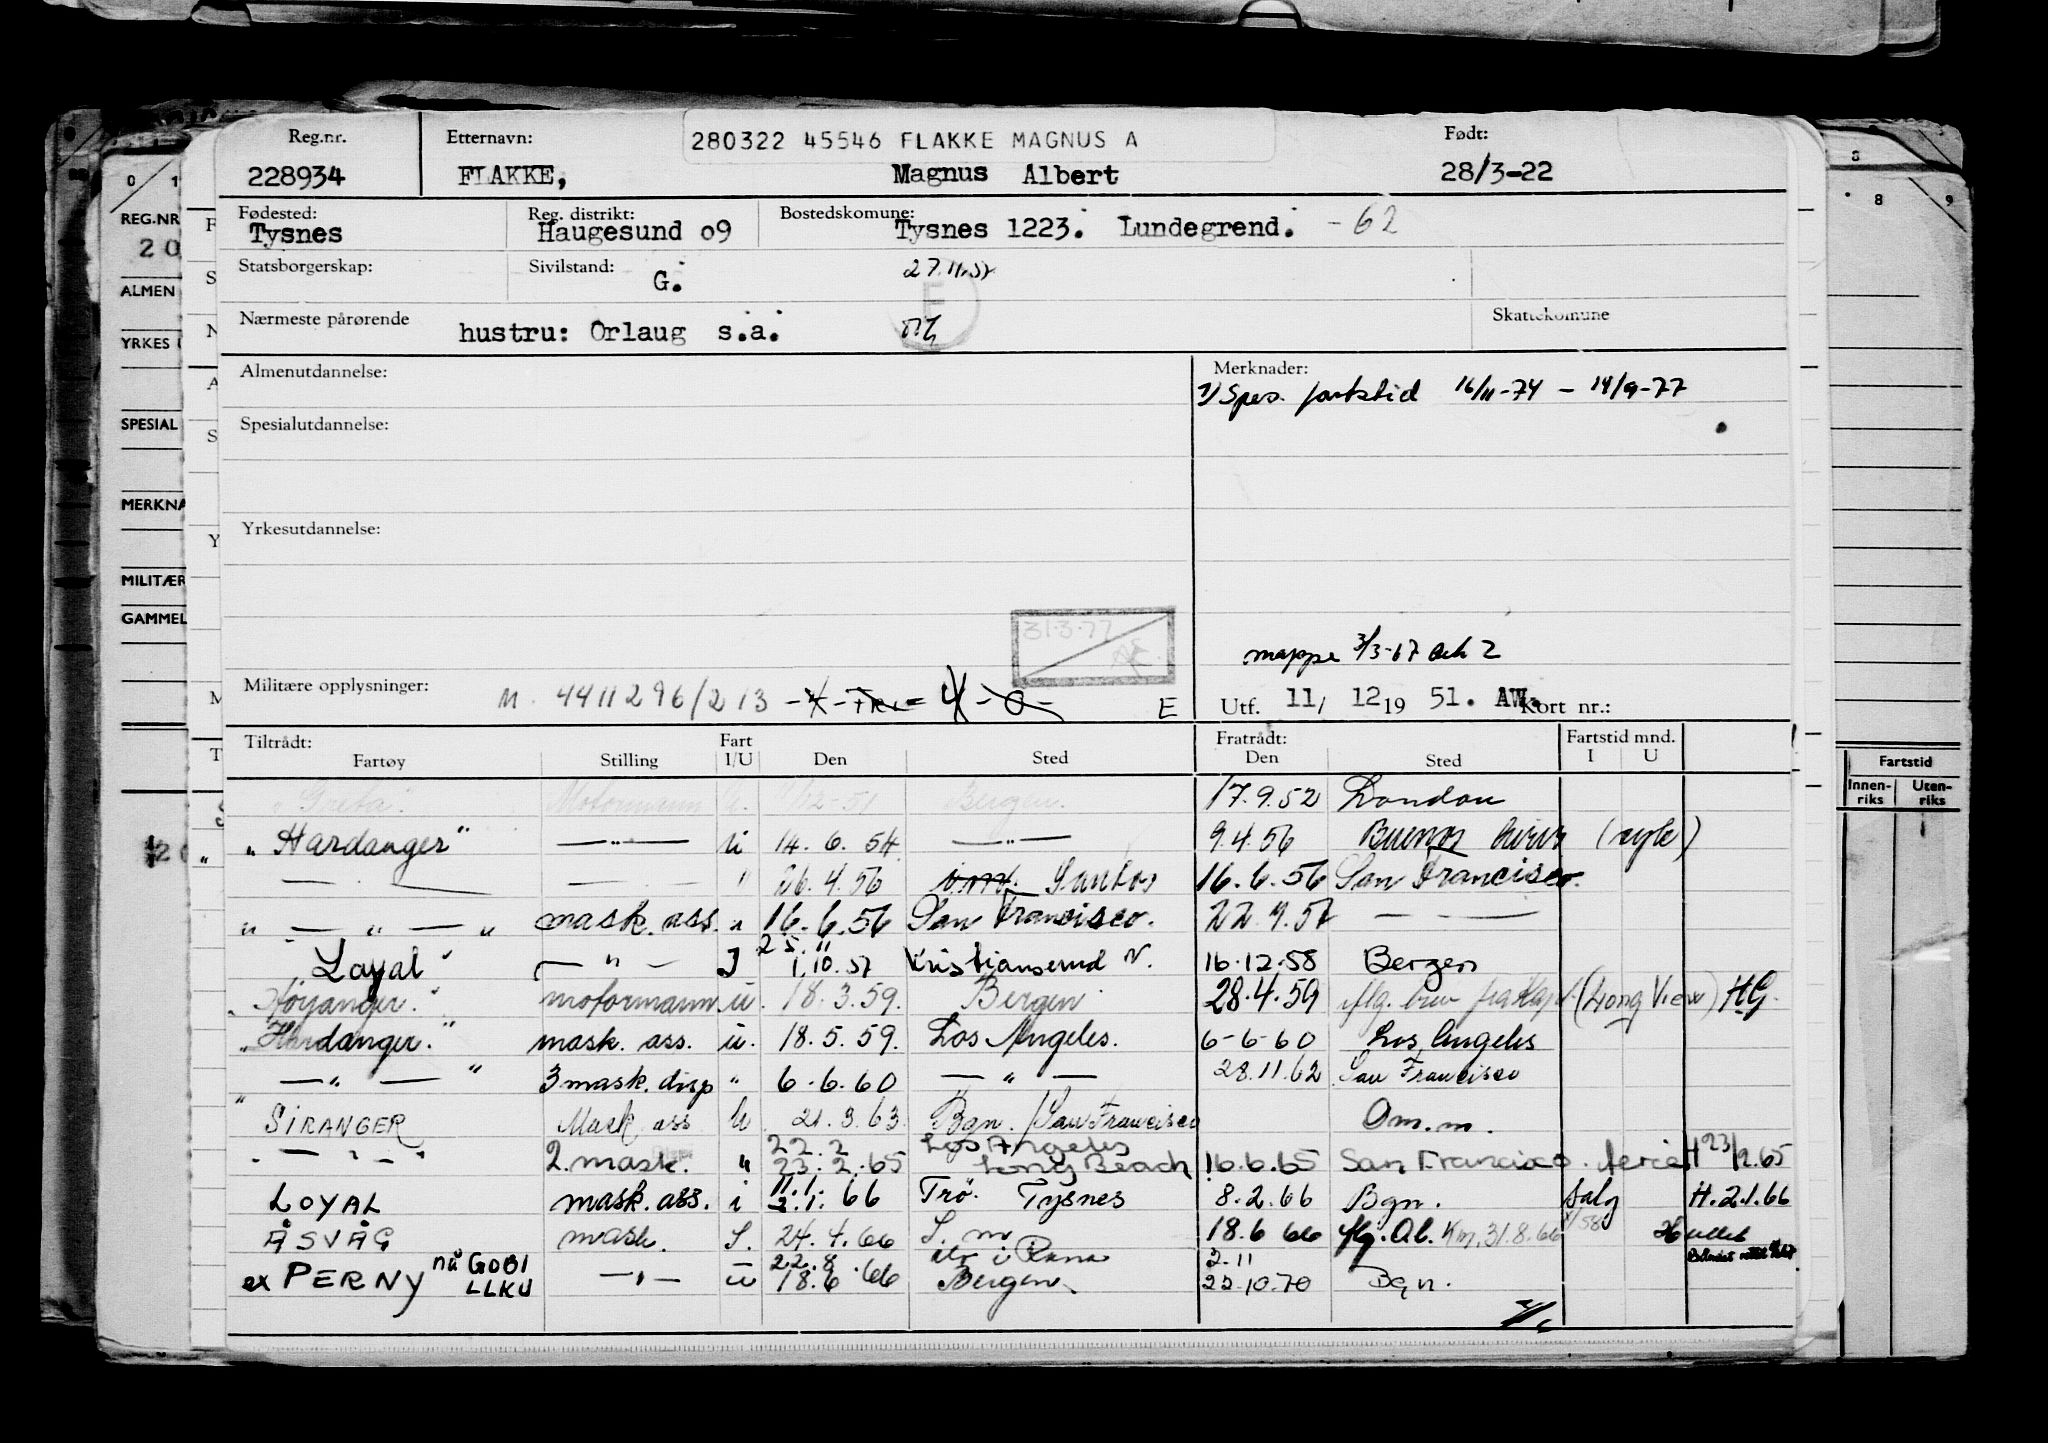 Reg.nr. Etternavn: 280322 45546 FLAKKE MAGNUS A Født:
228934 FLAKKE, Magnus Albert 28/3-22
Fødested: Reg. distrikt: Bostedskomune:
Tysnes Haugesund o9 Tysnes 1223. Lundegrend. - 62
Statsborgerskap: Sivilstand: G. 27.11.57
Nærmeste pårørende hustru: Orlaug s.a. Skattekomune
Almenutdannelse: Merknader:
1) Spes. fartstid 16/11-74 - 14/9-77
Spesialutdannelse:
Yrkesutdannelse:
31.3.77
mappe 3/3-67
Militære opplysninger: M. 4411296/213 E Utf. 11/ 12 19 51. AW. Kort nr.:
Tiltrådt: Fart Fratrådt: Fartstid mnd.
Fartøy Stilling I/U Den Sted Den Sted I U
"Greta" Motormann u. Bergen. 17.9.52 London
"Hardanger" —"— u 14.6.54 —"— 9.4.56 Buenos Aires (syk)
— — " 26.4.56 Santos 16.6.56 San Francisco.
" — " — " mask. ass. " 16.6.56 San Francisco. 22.9.57 — " —
"Loyal" — " — I 25.11 1.10.57 Kristiansund N. 16.12.58 Bergen
"Høyanger." motormann u. 18.3.59. Bergen 28.4.59 (Long View) HG.
"Hardanger." mask. ass. u. 18.5.59. Los Angeles. 6-6-60 Los Angeles
— " — " 3 mask. disp " 6.6.60 — " — 28.11.62 San Francisco
" SIRANGER Mask ass u 21.3.63 Bgn. /San Francisco Om.m.
" — " — " 2. mask. " 22.2 23.2.65 Los Angeles Long Beach 16.6.65 San Francisco. ferie H 23/12.65
LOYAL mask. ass. i 11.1. 3.1. 66 Trö. Tysnes 8.2.66 Bgn. salg H.2.1.66
ÅSVÅG mask. S. 24.4.66 S. m 18.6 66 31.8.66
ex PERNY nå GOBI LLKU — " — u 22.8 18.6 .66 i Rana Bergen 2.11 22.10.70 Bgn.
REG.NR
20
ALMEN
YRKES
SPESIAL
MERKNA
MILITÆR
GAMMEL
Fartstid
Innen-riks Uten-riks